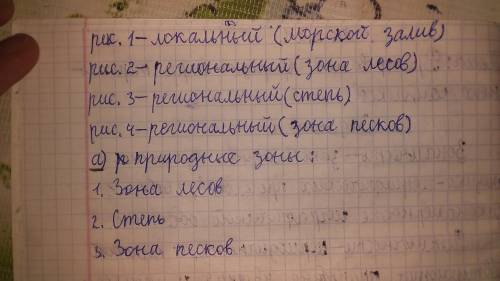 рис. 1-локальный (морской залив)
рис. 2-региональный (зона лесов)
рис. 3-региональный (степь)
рис. 4-региональный (зона песков)
а) природные зоны:
1. Зона лесов
2. Степь
3. Зона песков